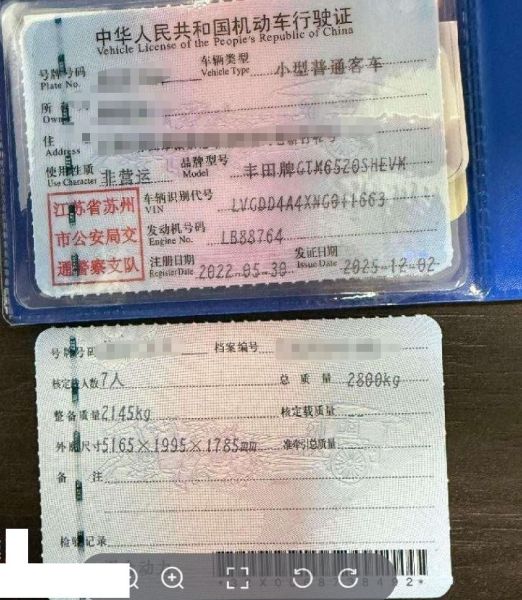 中华人民共和国机动车行驶证
Vehicle License of the People's Republic of China
号牌号码 车辆类型 小型普通客车
Plate No. Vehicle Type
所
Owner
住
Address
使用性质 非营运 品牌型号 丰田牌GTM6520SHEVM
Use Character Model
江苏省苏州
市公安局交
通警察支队
车辆识别代号 LVGDD4A4XNG011663
VIN
发动机号码 LB88764
Engine No.
注册日期 2022-05-30 发证日期 2025-12-02
Register Date Issue Date
号牌号码 档案编号
核定载人数 7人 总质量 2800kg
整备质量 2145kg 核定载质量
外廓尺寸 5165×1995×1785mm 准牵引总质量
备 注
检验记录